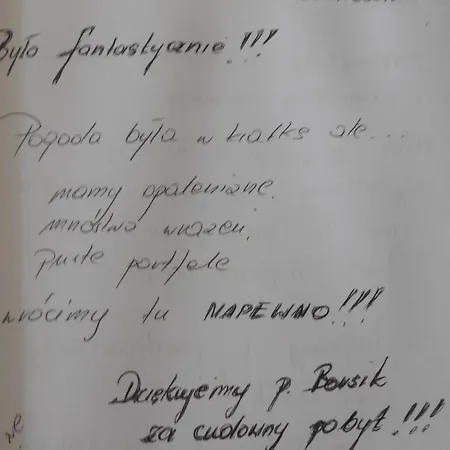 Było fantastycznie!!!
Pogoda była w kratkę ale...
mamy opalenizne,
mnóstwo wrażeń,
Puste portfele
wrócimy tu NAPEWNO!!!
Dziękujemy p. Bensik
za cudowny pobyt!!!